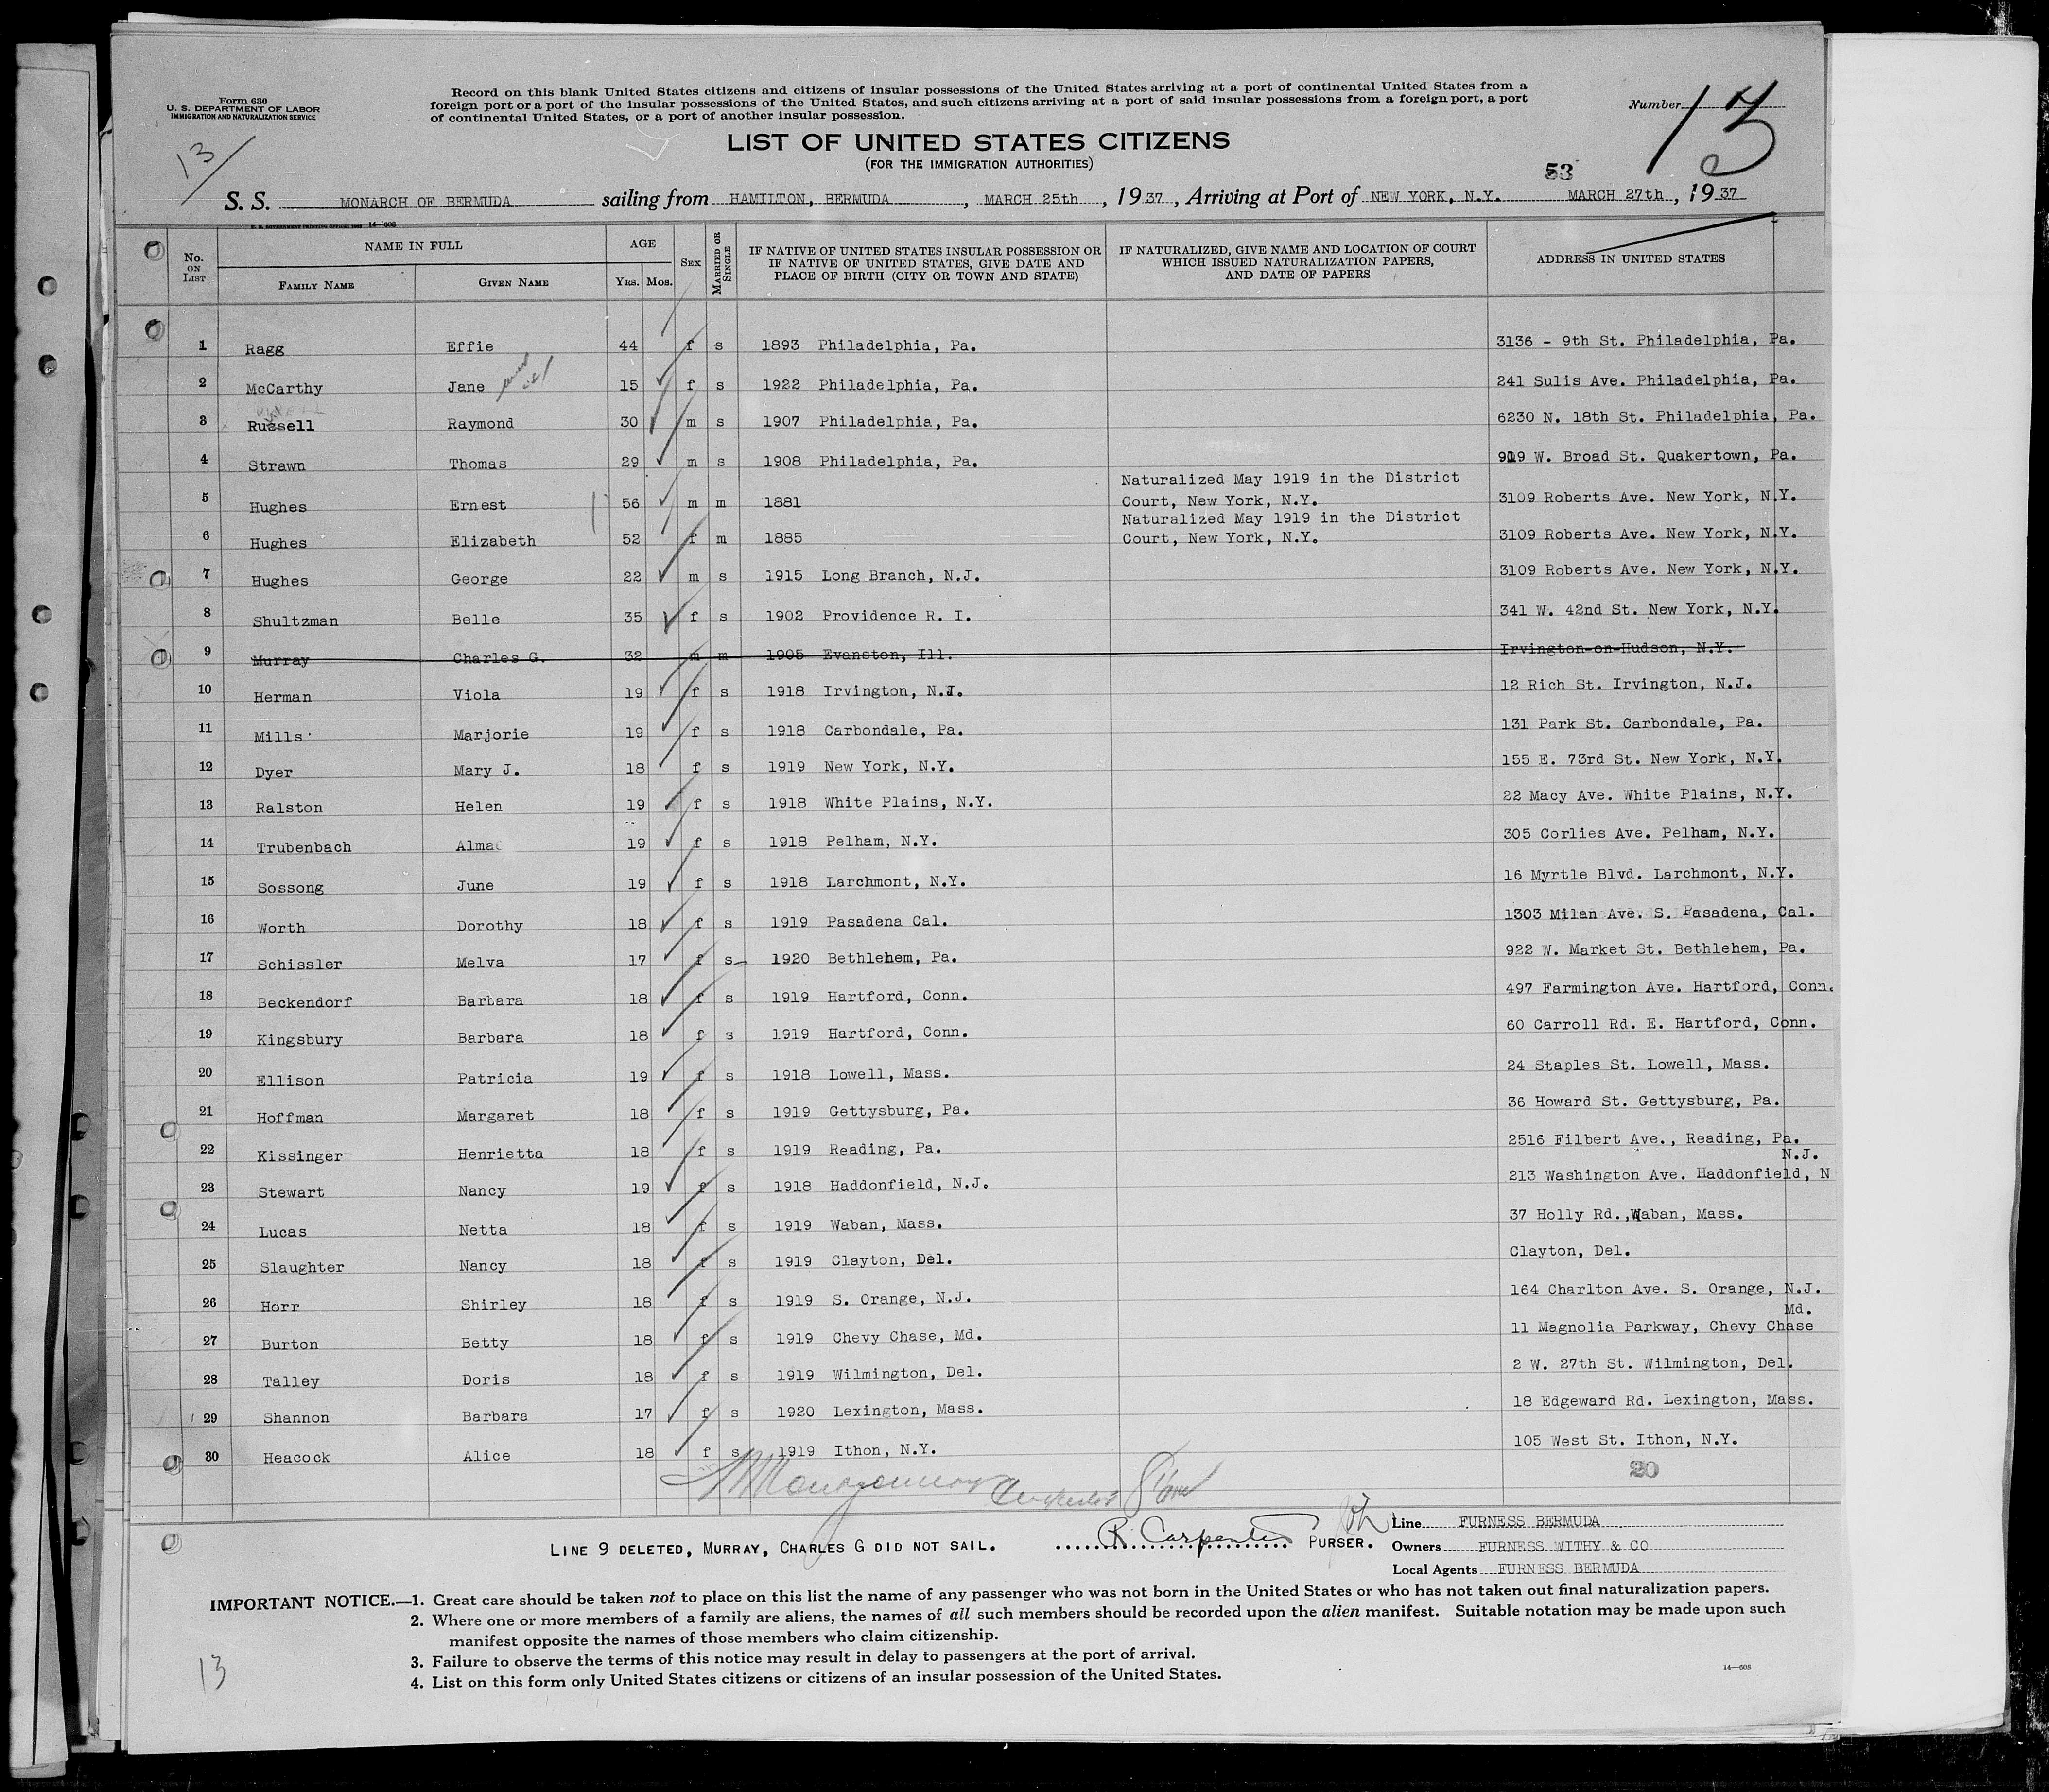 Form 630
U. S. DEPARTMENT OF LABOR
IMMIGRATION AND NATURALIZATION SERVICE
Record on this blank United States citizens and citizens of insular possessions of the United States arriving at a port of continental United States from a
foreign port or a port of the insular possessions of the United States, and such citizens arriving at a port of said insular possessions from a foreign port, a port
of continental United States, or a port of another insular possession.
Number 13
13
LIST OF UNITED STATES CITIZENS
(FOR THE IMMIGRATION AUTHORITIES)
53
S. S. MONARCH OF BERMUDA sailing from HAMILTON, BERMUDA, MARCH 25th, 1937, Arriving at Port of NEW YORK, N.Y. MARCH 27th, 1937
14—608
No. ON LIST NAME IN FULL FAMILY NAME GIVEN NAME AGE YRS. MOS. SEX MARRIED OR SINGLE IF NATIVE OF UNITED STATES INSULAR POSSESSION OR IF NATIVE OF UNITED STATES, GIVE DATE AND PLACE OF BIRTH (CITY OR TOWN AND STATE) IF NATURALIZED, GIVE NAME AND LOCATION OF COURT WHICH ISSUED NATURALIZATION PAPERS, AND DATE OF PAPERS ADDRESS IN UNITED STATES
1 Ragg Effie 44 f s 1893 Philadelphia, Pa. 3136 - 9th St. Philadelphia, Pa.
2 McCarthy Jane 15 f s 1922 Philadelphia, Pa. 241 Sulis Ave. Philadelphia, Pa.
3 Russell Raymond 30 m s 1907 Philadelphia, Pa. 6230 N. 18th St. Philadelphia, Pa.
4 Strawn Thomas 29 m s 1908 Philadelphia, Pa. 919 W. Broad St. Quakertown, Pa.
Naturalized May 1919 in the District
5 Hughes Ernest 56 m m 1881 Court, New York, N.Y. 3109 Roberts Ave. New York, N.Y.
Naturalized May 1919 in the District
6 Hughes Elizabeth 52 f m 1885 Court, New York, N.Y. 3109 Roberts Ave. New York, N.Y.
7 Hughes George 22 m s 1915 Long Branch, N.J. 3109 Roberts Ave. New York, N.Y.
8 Shultzman Belle 35 f s 1902 Providence R. I. 341 W. 42nd St. New York, N.Y.
9 Murray Charles G. 32 m m 1905 Evanston, Ill. Irvington-on-Hudson, N.Y.
10 Herman Viola 19 f s 1918 Irvington, N.J. 12 Rich St. Irvington, N.J.
11 Mills Marjorie 19 f s 1918 Carbondale, Pa. 131 Park St. Carbondale, Pa.
12 Dyer Mary J. 18 f s 1919 New York, N.Y. 155 E. 73rd St. New York, N.Y.
13 Ralston Helen 19 f s 1918 White Plains, N.Y. 22 Macy Ave. White Plains, N.Y.
14 Trubenbach Alma 19 f s 1918 Pelham, N.Y. 305 Corlies Ave. Pelham, N.Y.
15 Sossong June 19 f s 1918 Larchmont, N.Y. 16 Myrtle Blvd. Larchmont, N.Y.
16 Worth Dorothy 18 f s 1919 Pasadena Cal. 1303 Milan Ave. S. Pasadena, Cal.
17 Schissler Melva 17 f s 1920 Bethlehem, Pa. 922 W. Market St. Bethlehem, Pa.
18 Beckendorf Barbara 18 f s 1919 Hartford, Conn. 497 Farmington Ave. Hartford, Conn.
19 Kingsbury Barbara 18 f s 1919 Hartford, Conn. 60 Carroll Rd. E. Hartford, Conn.
20 Ellison Patricia 19 f s 1918 Lowell, Mass. 24 Staples St. Lowell, Mass.
21 Hoffman Margaret 18 f s 1919 Gettysburg, Pa. 36 Howard St. Gettysburg, Pa.
22 Kissinger Henrietta 18 f s 1919 Reading, Pa. 2516 Filbert Ave., Reading, Pa.
N.J.
23 Stewart Nancy 19 f s 1918 Haddonfield, N.J. 213 Washington Ave. Haddonfield, N
24 Lucas Netta 18 f s 1919 Waban, Mass. 37 Holly Rd., Waban, Mass.
25 Slaughter Nancy 18 f s 1919 Clayton, Del. Clayton, Del.
26 Horr Shirley 18 f s 1919 S. Orange, N.J. 164 Charlton Ave. S. Orange, N.J.
Md.
27 Burton Betty 18 f s 1919 Chevy Chase, Md. 11 Magnolia Parkway, Chevy Chase
28 Talley Doris 18 f s 1919 Wilmington, Del. 2 W. 27th St. Wilmington, Del.
29 Shannon Barbara 17 f s 1920 Lexington, Mass. 18 Edgeward Rd. Lexington, Mass.
30 Heacock Alice 18 f s 1919 Ithon, N.Y. 105 West St. Ithon, N.Y.
20
Montgomery
Line FURNESS BERMUDA
LINE 9 DELETED, MURRAY, CHARLES G DID NOT SAIL. R. Carpenter PURSER. Owners FURNESS WITHY & CO
Local Agents FURNESS BERMUDA
IMPORTANT NOTICE.—1. Great care should be taken not to place on this list the name of any passenger who was not born in the United States or who has not taken out final naturalization papers.
2. Where one or more members of a family are aliens, the names of all such members should be recorded upon the alien manifest. Suitable notation may be made upon such
manifest opposite the names of those members who claim citizenship.
3. Failure to observe the terms of this notice may result in delay to passengers at the port of arrival.
4. List on this form only United States citizens or citizens of an insular possession of the United States.
13
14—608